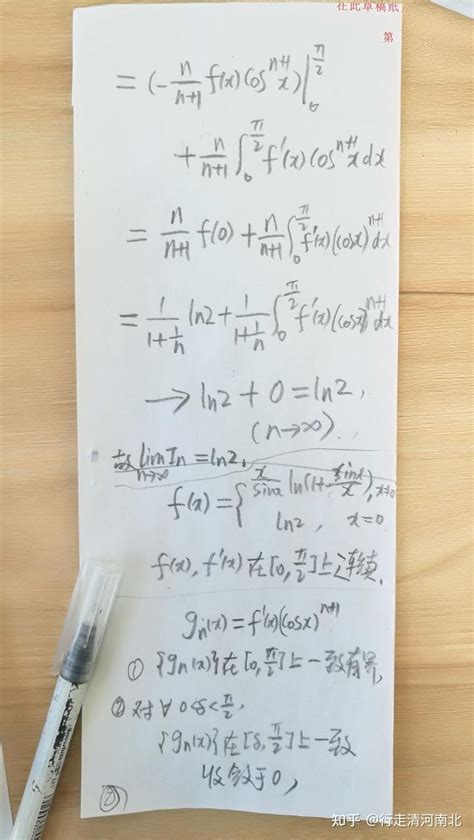 在此草稿纸
第
= (-n/(n+1) f(x) cos^{n+1} x)|_0^{π/2}
+ n/(n+1) ∫_0^{π/2} f'(x) cos^{n+1} x dx
= n/(n+1) f(0) + n/(n+1) ∫_0^{π/2} f'(x) (cosx)^{n+1} dx
= 1/(1+1/n) ln2 + 1/(1+1/n) ∫_0^{π/2} f'(x) (cosx)^{n+1} dx
→ ln2 + 0 = ln2,
(n→∞).
故 lim_{n→∞} I_n = ln2,
f(x) = { x/sinx ln(1+ sinx/x), x≠0
ln2, x=0
f(x), f'(x) 在[0, π/2]上连续.
g_n(x) = f'(x)(cosx)^{n+1}
① {g_n(x)}在[0, π/2]上一致有界,
② 对∀ 0<δ<π/2,
{g_n(x)}在[δ, π/2]上一致
收敛于0,
知乎 @行走清河南北